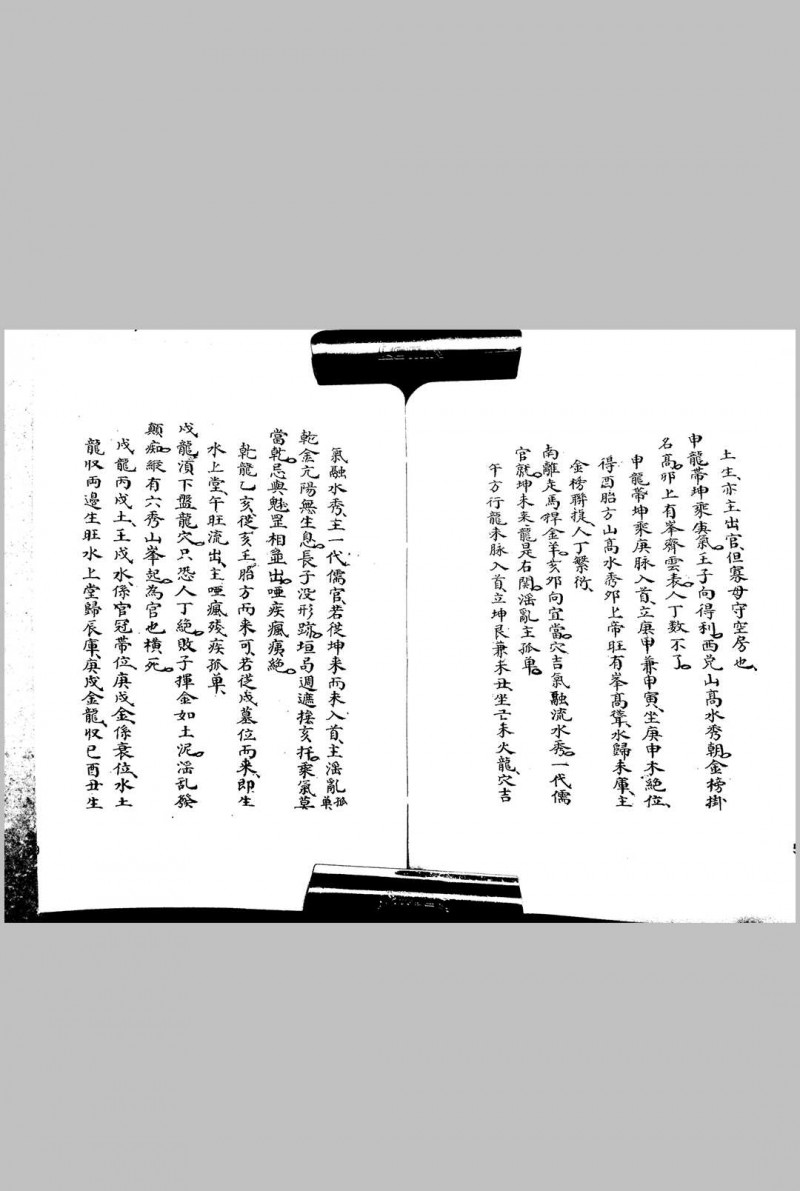 土生、亦主出官、但寡母守空房也、
申龍帶坤乘庚氣。壬子向得利。西兌山高水秀朝。金榜掛
名高。卯上有峯齊雲表。人丁数不了。
申龍帶坤乘庚脉入首、立庚申兼申寅、坐庚申木絕位、
得酉胎方山高水秀、卯上帝旺有峯高聳、水歸未庫、主
金榜聯捷、人丁繁衍、
南離走馬捍金羊。亥卯向宜當。穴吉氣融流水秀。一代儒
官就。坤未来龍是右関。滛亂主孤单。
午方行龍未脉入首、立坤艮兼未丑、坐己未火龍、穴吉
氣融水秀、主一代儒官、若從坤来而未入首、主滛亂孤单、
乾金亢陽無生息。長子没形跡。垣局週遮接亥托。乘氣莫
當乾。忌與魁罡相並出。唖疾瘋癀絕。
乾龍乙亥、從亥壬胎方而来可、若從戌墓位而来、即生
水上堂、午旺流出、主唖瘋殘疾孤单、
戌龍湏下盤龍穴。只恐人丁絕。敗子揮金如土泥。滛乱發
顛痴。縱有六秀山峯起。為官也横死。
戊龍丙戌土、壬戌水、係官冠帶位、庚戌金、係衰位、水土
龍収両邊生旺水上堂歸辰庫、庚戌金龍、収巳酉丑生